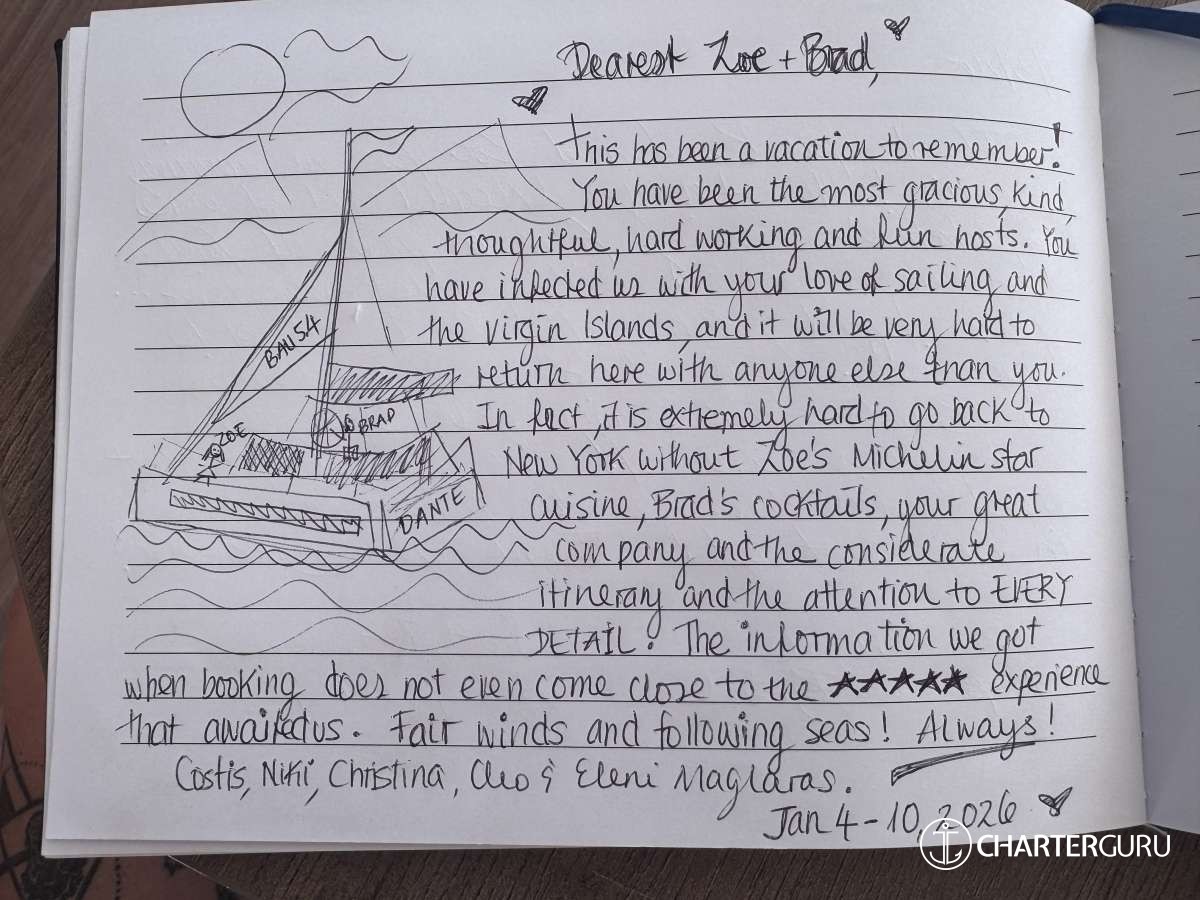 Dearest Zoe + Brad,
This has been a vacation to remember!
You have been the most gracious, kind,
thoughtful, hard working and fun hosts. You
have infected us with your love of sailing and
the Virgin Islands, and it will be very hard to
return here with anyone else than you.
In fact, it is extremely hard to go back to
New York without Zoe's Michelin star
cuisine, Brad's cocktails, your great
company and the considerate
itinerary and the attention to EVERY
DETAIL! The information we got
when booking does not even come close to the ★★★★★ experience
that awaited us. Fair winds and following seas! Always!
Costis, Niki, Christina, Cleo & Eleni Maglaras.
Jan 4-10, 2026
BALI 54
ZOE
BRAD
DANTE
CHARTERGURU